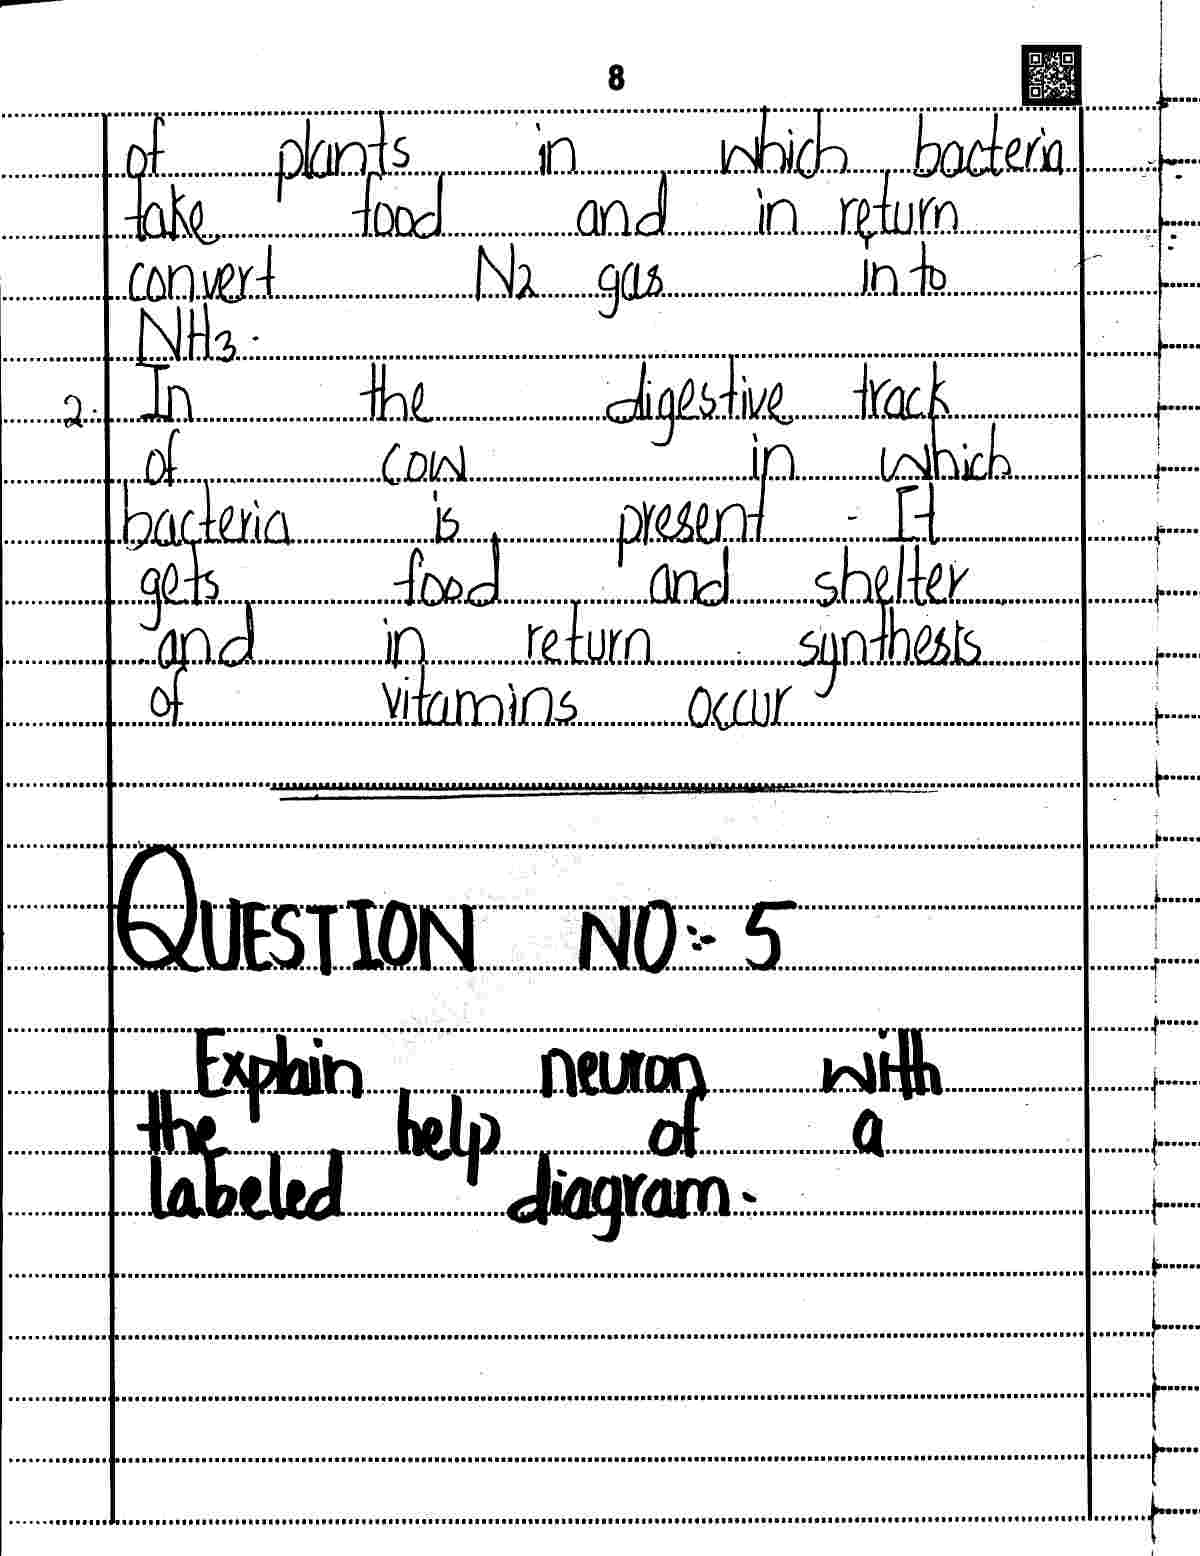 8
of plants in which bacteria
take food and in return
convert N2 gas into
NH3.
2. In the digestive track
of cow in which
bacteria is present. It
gets food and shelter
and in return synthesis
of vitamins occur
QUESTION NO:- 5
Explain neuron with
the help of a
labeled diagram.